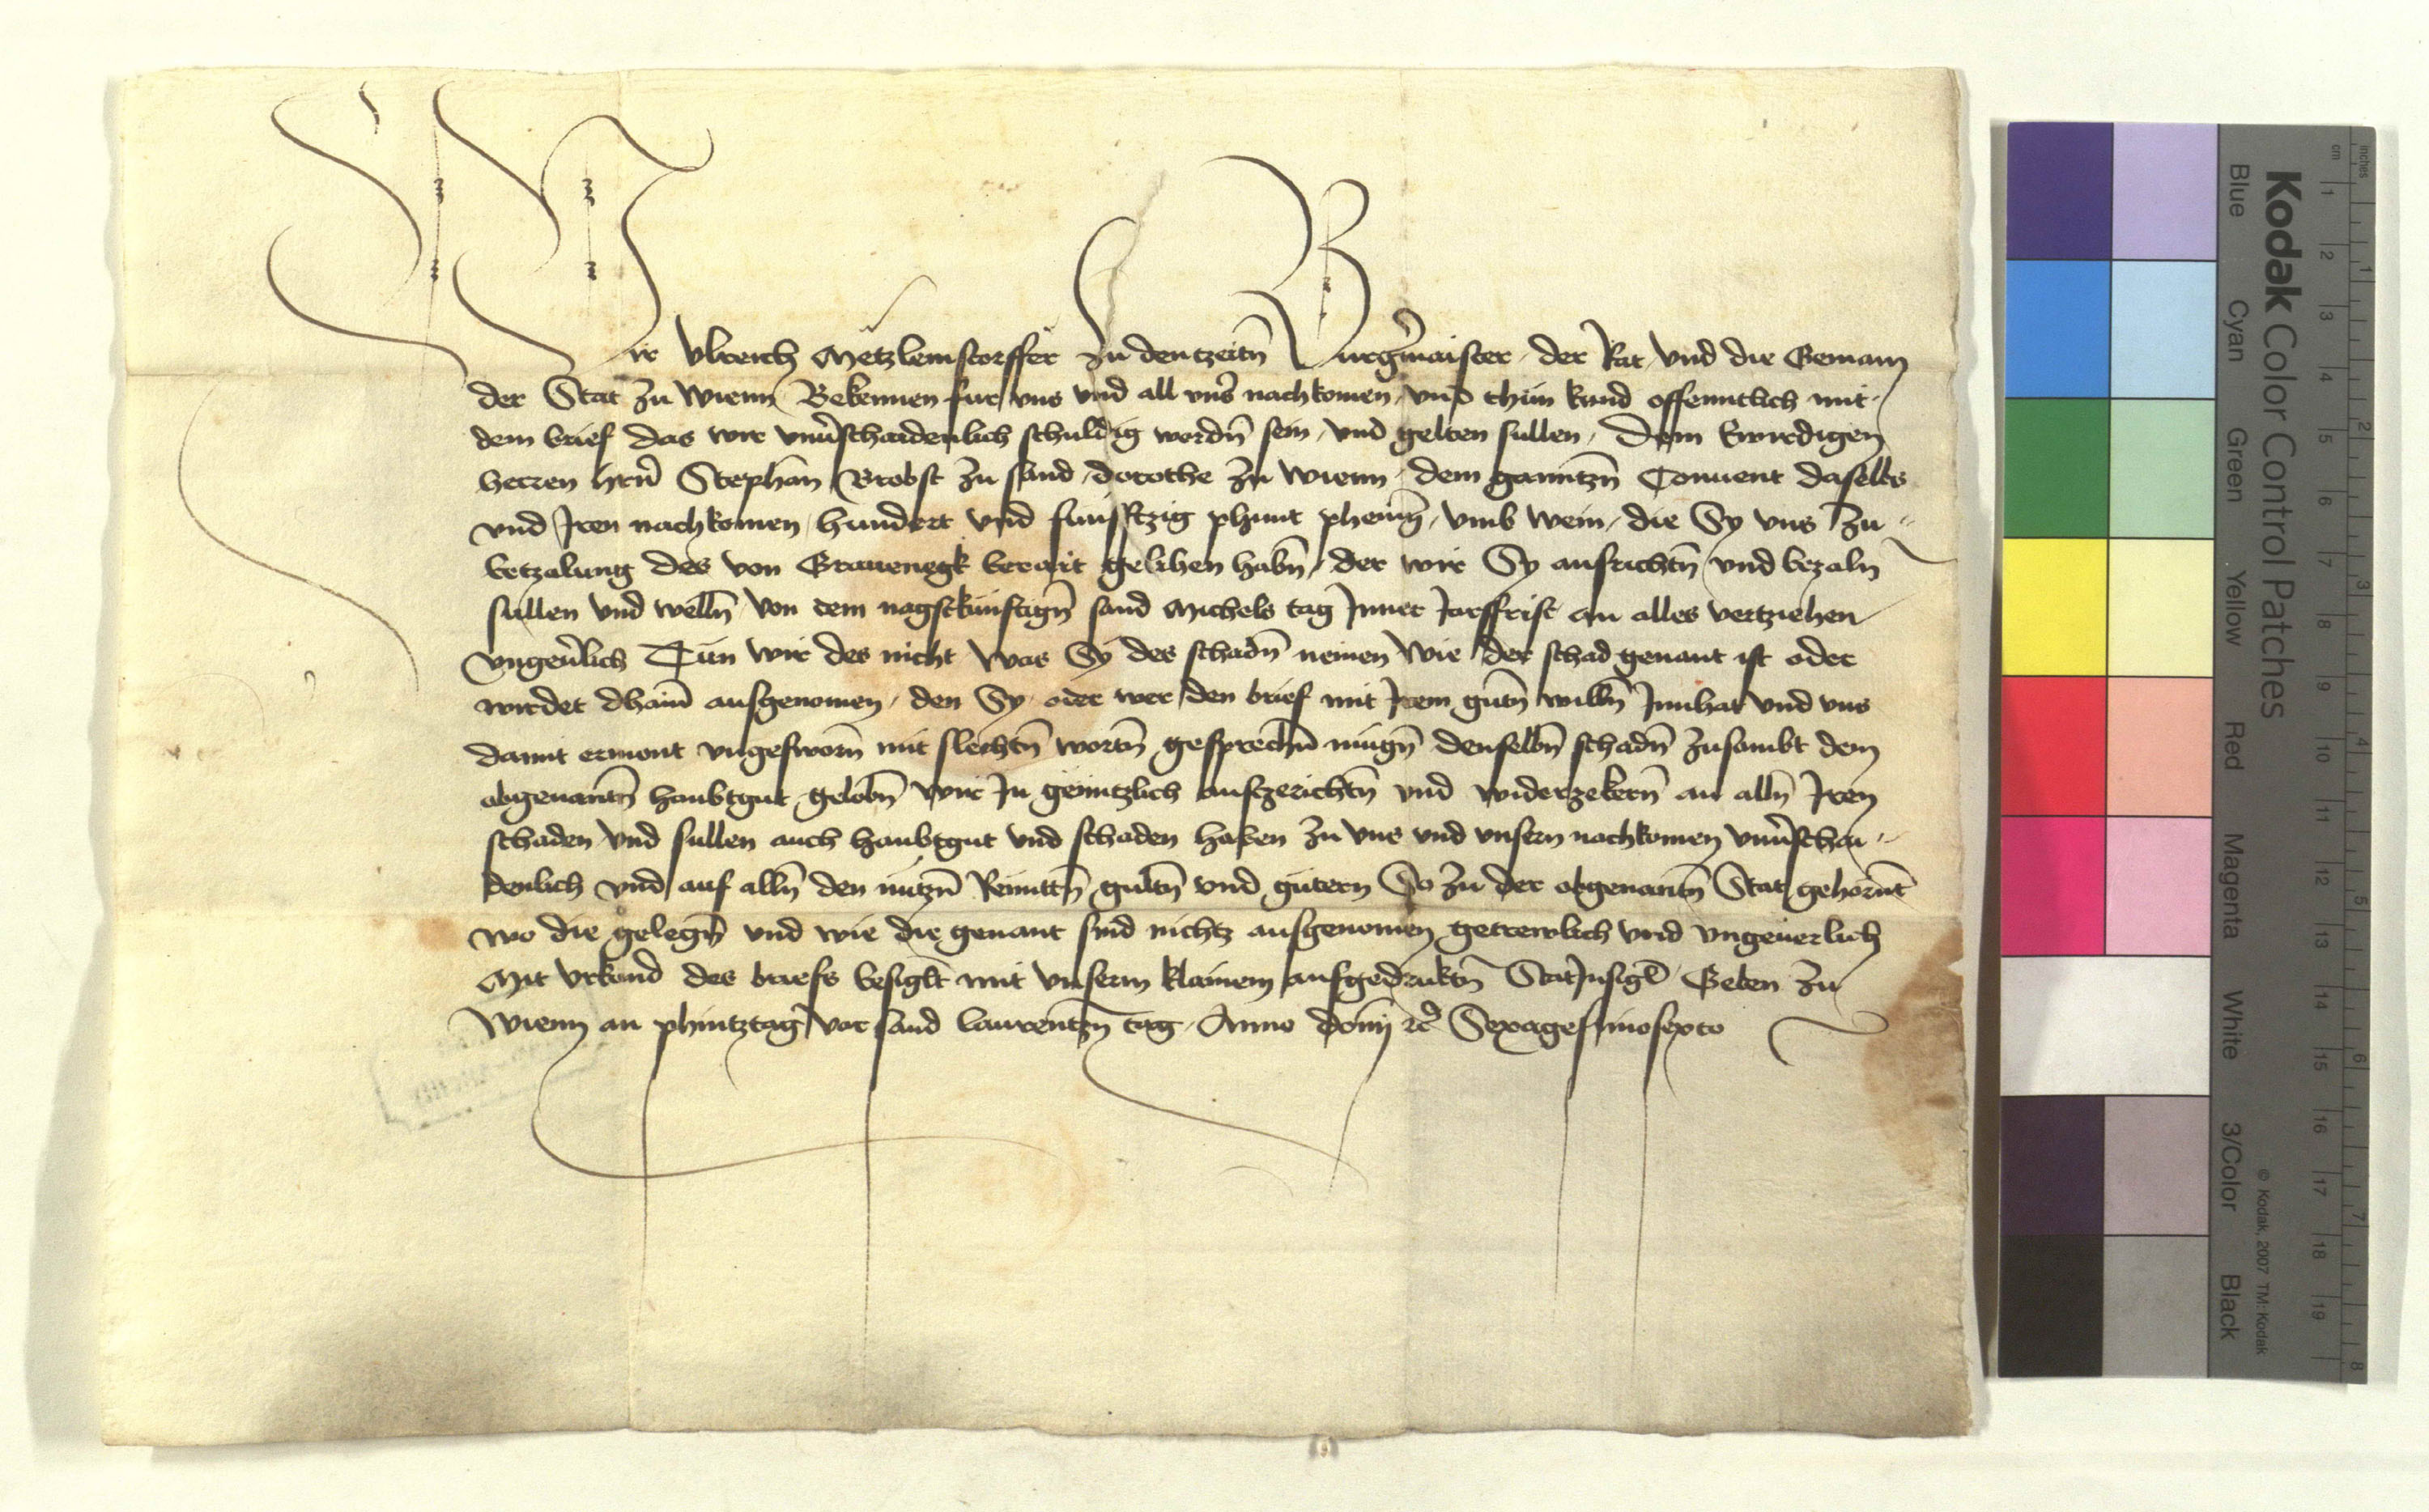 Wir Vlreich Metzleinstorffer zu den tzeitn̄ Burg̓maister der Rat vnd die Gemain
der Stat zu Wienn Bekennen fur vns vnd all vns̓ nachkomen vnd thůn kund offenntlich mit
dem brief das wir vnuˀschaidenlich schuldig wordn̄ sein vnd gelten sullen dem Erwirdigen
herren hern̄ Stephan Brobst zu sand dorothe zu Wienn dem ganntzn̄ Conuent daselbs
vnd Iren nachkomen hundert vnd funfftzig phunt phenīg vmb wein die Sy vns zu
betzalung des von Grauenegk berait gelihen habn̄ der wir Sy ausrichtn̄ vnd bezaln
sullen vnd welln̄ von dem nagstkünftign̄ sand Michels tag Inner Jarsfrist an alles vertziehen
vngeuˀlich Tün wir des nicht Was Sy des schadn̄ nemen wie der schad genant ist oder
wirdet dhain̄ ausgenomen den Sy oder wer den brief mit Irem gutn̄ willn̄ Innhat vnd vns
damit ermont vngesworn̄ mit slechtn̄ wortn̄ gesprechn̄ mügn̄ denselbn̄ schadn̄ zusambt dem
obgenantn̄ haubtgut gelobn̄ wir In genntzlich auszerichtn̄ vnd widerzekern̄ an alln̄ Iren
schaden vnd sullen auch haubtgut vnd schaden haben zu vns vnd vnsern nachkomen vnuˀschai
denlich vnd auf alln̄ den nützn̄ Renntn̄ gultn̄ vnd gütern So zu der obgenantn̄ Stat gehörnt
wo die gelegn̄ vnd wie die genant sind nichtz ausgenomen getrewlich vnd vngeuerlich
Mit vrkund des briefs besiglt mit vnserm klainem aufgedrukt̄n StatInsigl̄ Geben zu
Wienn an phintztag vor sand laurentzn̄ tag Anno dom̄j ꝛc̓ Sexagesimosexto
Kodak Color Control Patches
Blue Cyan Green Yellow Red Magenta White 3/Color Black
© Kodak, 2007 TM: Kodak
inches 1 2 3 4 5 6 7 8
cm 1 2 3 4 5 6 7 8 9 10 11 12 13 14 15 16 17 18 19